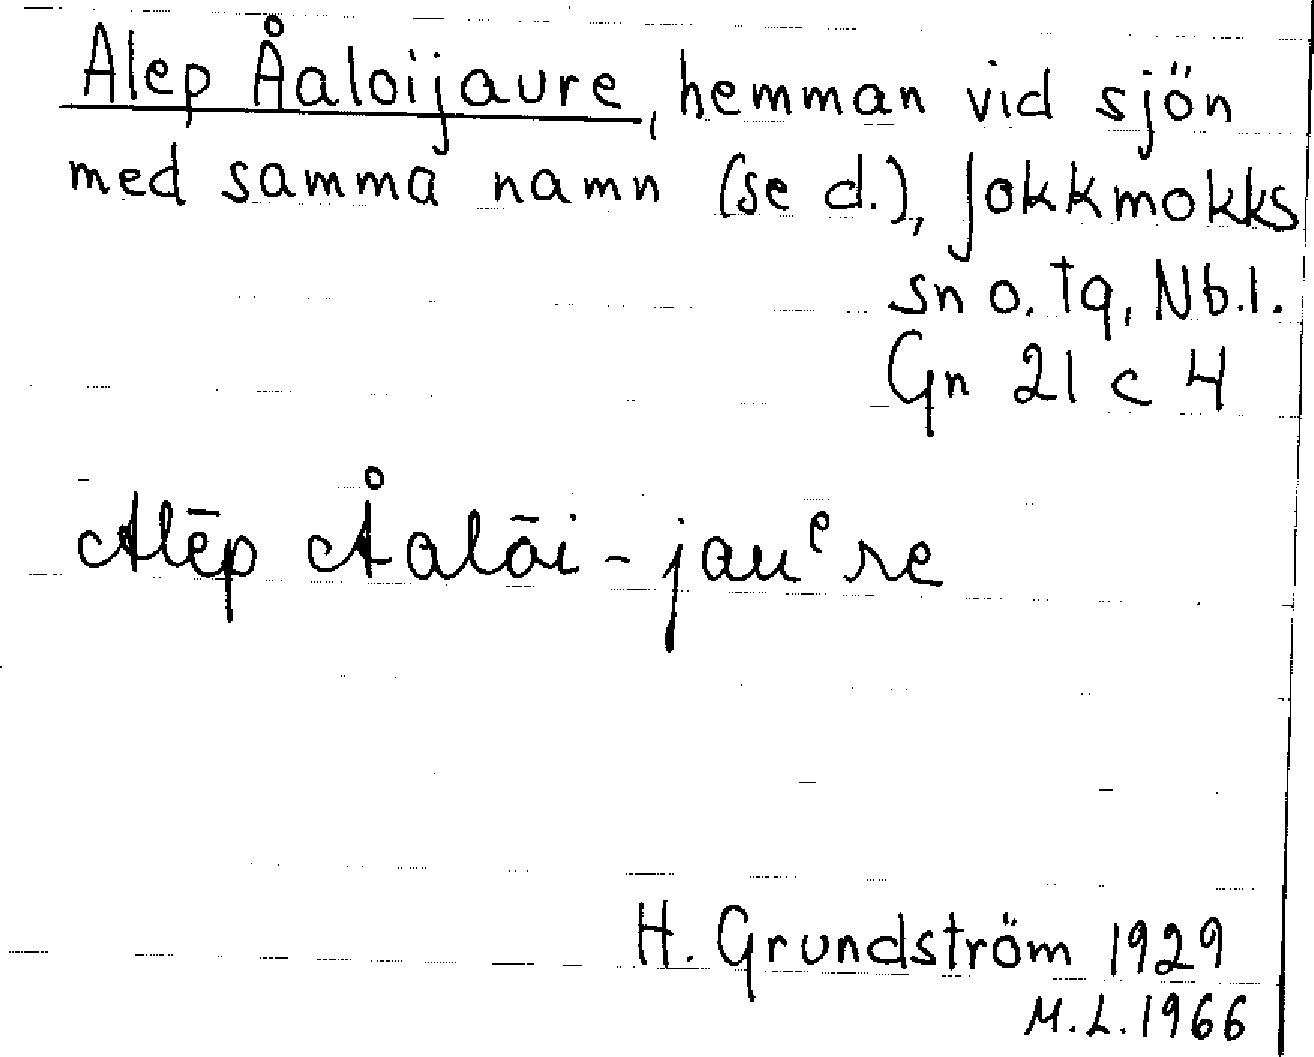 Alep Åaloijaure, hemman vid sjön
med samma namn (se d.), Jokkmokks
sn o. tg, Nb.l.
Gn 21 c 4
Alēp Åalāi-jauᵉre
H. Grundström 1929
M.L. 1966